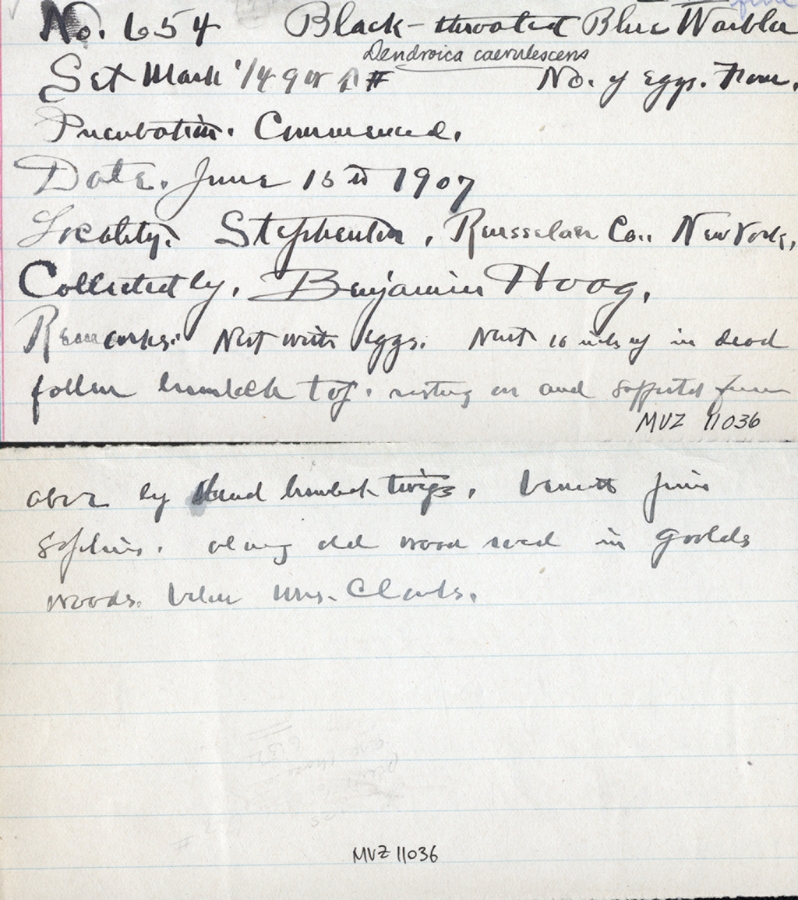 No. 654 Black-throated Blue Warbler
Dendroica caerulescens
Set Mark 1/4 9 No. of eggs. Four.
Incubation. Commenced.
Date. June 15th 1907
Locality. Stephentown, Rensselaer Co., New York,
Collected by, Benjamin Hoag,
Remarks. Nest with eggs. Nest 10 in up in dead
fallen hemlock top. resting on and
MVZ 11036
above by dead hemlock twigs,
along old wood road in Goolds
woods. Mrs. Clarks.
MVZ 11036